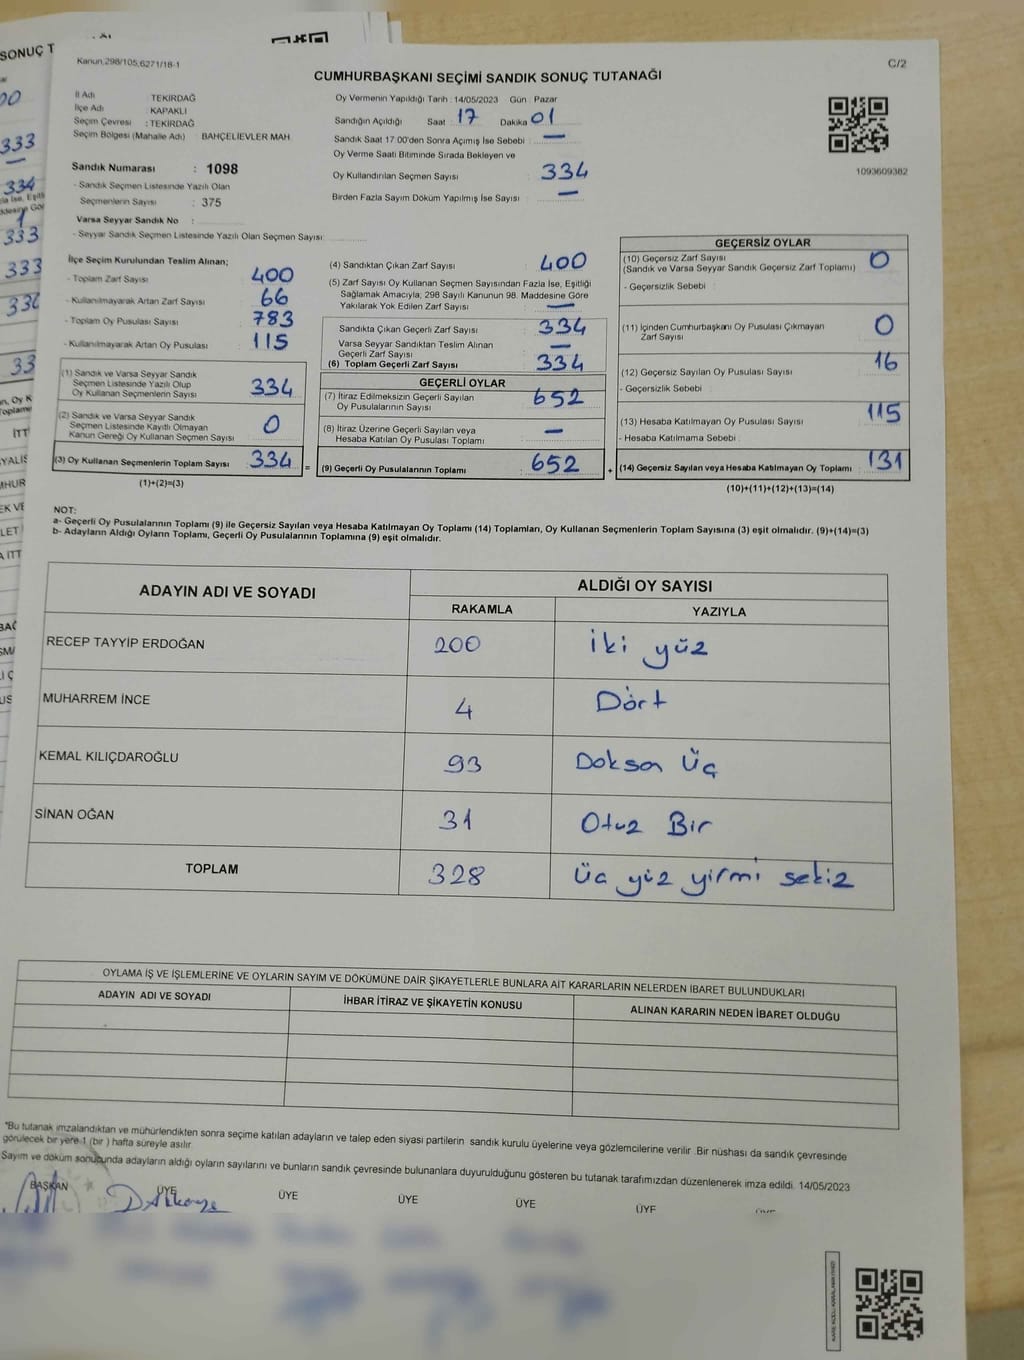 Kanun,298/105,6271/18-1
C/2
CUMHURBAŞKANI SEÇİMİ SANDIK SONUÇ TUTANAĞI
İl Adı : TEKİRDAĞ
İlçe Adı : KAPAKLI
Seçim Çevresi : TEKİRDAĞ
Seçim Bölgesi (Mahalle Adı) BAHÇELİEVLER MAH.
Sandık Numarası : 1098
- Sandık Seçmen Listesinde Yazılı Olan
Seçmenlerin Sayısı : 375
Varsa Seyyar Sandık No :
- Seyyar Sandık Seçmen Listesinde Yazılı Olan Seçmen Sayısı:
Oy Vermenin Yapıldığı Tarih : 14/05/2023 Gün : Pazar
Sandığın Açıldığı Saat : 17 Dakika 01
Sandık Saat 17:00'den Sonra Açımış İse Sebebi : —
Oy Verme Saati Bitiminde Sırada Bekleyen ve
Oy Kullandırılan Seçmen Sayısı : 334
Birden Fazla Sayım Döküm Yapılmış İse Sayısı : —
1093609382
İlçe Seçim Kurulundan Teslim Alınan;
- Toplam Zarf Sayısı : 400
- Kullanılmayarak Artan Zarf Sayısı : 66
- Toplam Oy Pusulası Sayısı : 783
- Kullanılmayarak Artan Oy Pusulası : 115
(1) Sandık ve Varsa Seyyar Sandık
Seçmen Listesinde Yazılı Olup
Oy Kullanan Seçmenlerin Sayısı : 334
(2) Sandık ve Varsa Seyyar Sandık
Seçmen Listesinde Kayıtlı Olmayan
Kanun Gereği Oy Kullanan Seçmen Sayısı : 0
(3) Oy Kullanan Seçmenlerin Toplam Sayısı : 334
(1)+(2)=(3)
=
(4) Sandıktan Çıkan Zarf Sayısı : 400
(5) Zarf Sayısı Oy Kullanan Seçmen Sayısından Fazla İse, Eşitliği
Sağlamak Amacıyla, 298 Sayılı Kanunun 98. Maddesine Göre
Yakılarak Yok Edilen Zarf Sayısı : —
Sandıkta Çıkan Geçerli Zarf Sayısı : 334
Varsa Seyyar Sandıktan Teslim Alınan
Geçerli Zarf Sayısı : —
(6) Toplam Geçerli Zarf Sayısı : 334
GEÇERLİ OYLAR
(7) İtiraz Edilmeksizin Geçerli Sayılan
Oy Pusulalarının Sayısı : 652
(8) İtiraz Üzerine Geçerli Sayılan veya
Hesaba Katılan Oy Pusulası Toplamı : —
(9) Geçerli Oy Pusulalarının Toplamı : 652
+
GEÇERSİZ OYLAR
(10) Geçersiz Zarf Sayısı : 0
(Sandık ve Varsa Seyyar Sandık Geçersiz Zarf Toplamı)
- Geçersizlik Sebebi :
(11) İçinden Cumhurbaşkanı Oy Pusulası Çıkmayan
Zarf Sayısı : 0
(12) Geçersiz Sayılan Oy Pusulası Sayısı : 16
- Geçersizlik Sebebi :
(13) Hesaba Katılmayan Oy Pusulası Sayısı : 115
- Hesaba Katılmama Sebebi :
(14) Geçersiz Sayılan veya Hesaba Katılmayan Oy Toplamı : 131
(10)+(11)+(12)+(13)=(14)
NOT:
a- Geçerli Oy Pusulalarının Toplamı (9) ile Geçersiz Sayılan veya Hesaba Katılmayan Oy Toplamı (14) Toplamları, Oy Kullanan Seçmenlerin Toplam Sayısına (3) eşit olmalıdır. (9)+(14)=(3)
b- Adayların Aldığı Oyların Toplamı, Geçerli Oy Pusulalarının Toplamına (9) eşit olmalıdır.
ADAYIN ADI VE SOYADI
ALDIĞI OY SAYISI
RAKAMLA YAZIYLA
RECEP TAYYİP ERDOĞAN 200 İki yüz
MUHARREM İNCE 4 Dört
KEMAL KILIÇDAROĞLU 93 Doksan Üç
SİNAN OĞAN 31 Otuz Bir
TOPLAM 328 Üç yüz yirmi sekiz
OYLAMA İŞ VE İŞLEMLERİNE VE OYLARIN SAYIM VE DÖKÜMÜNE DAİR ŞİKAYETLERLE BUNLARA AİT KARARLARIN NELERDEN İBARET BULUNDUKLARI
ADAYIN ADI VE SOYADI İHBAR İTİRAZ VE ŞİKAYETİN KONUSU ALINAN KARARIN NEDEN İBARET OLDUĞU
*Bu tutanak imzalandıktan ve mühürlendikten sonra seçime katılan adayların ve talep eden siyasi partilerin sandık kurulu üyelerine veya gözlemcilerine verilir .Bir nüshası da sandık çevresinde
görülecek bir yere 1 (bir ) hafta süreyle asılır.
Sayım ve döküm sonucunda adayların aldığı oyların sayılarını ve bunların sandık çevresinde bulunanlara duyurulduğunu gösteren bu tutanak tarafımızdan düzenlenerek imza edildi. 14/05/2023
BAŞKAN ÜYE ÜYE ÜYE ÜYE ÜYE